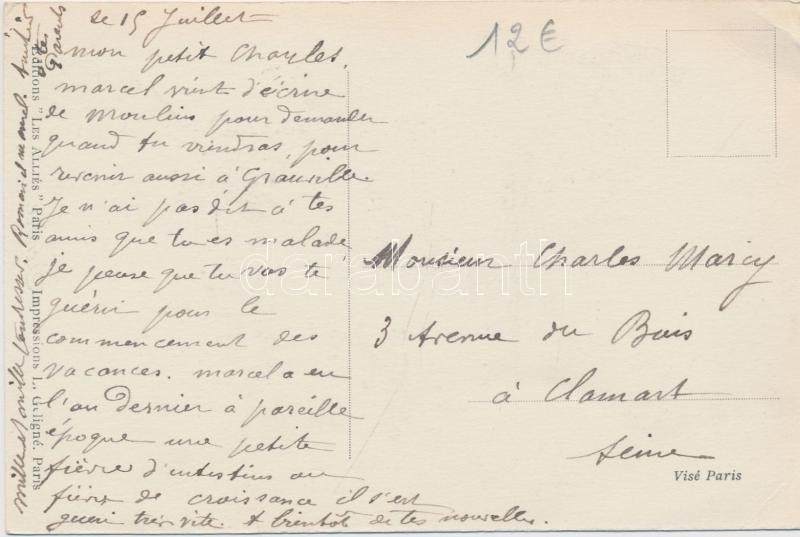 Le 15 Juillet
mon petit Charles,
marcel vient d'écrire
de Moulins pour demander
quand tu viendras, pour
revenir aussi à Granville
Je n'ai pas dit à tes
amis que tu es malade
je pense que tu vas te
guérir pour le
commencement des
vacances. marcel a eu
l'an dernier à pareille
époque une petite
fièvre d'intestins ou
fièvre de croissance il s'est
guéri très vite. A bientôt de tes nouvelles.
mille et mille tendresses. et marcel. Amitiés
à tes
Parents
Editions "LES ALLIÉS" Paris
Impressions L. Geligné. Paris
12€
Monsieur Charles Marcy
3 Avenue du Bois
à Clamart
Seine
Visé Paris
darabanth